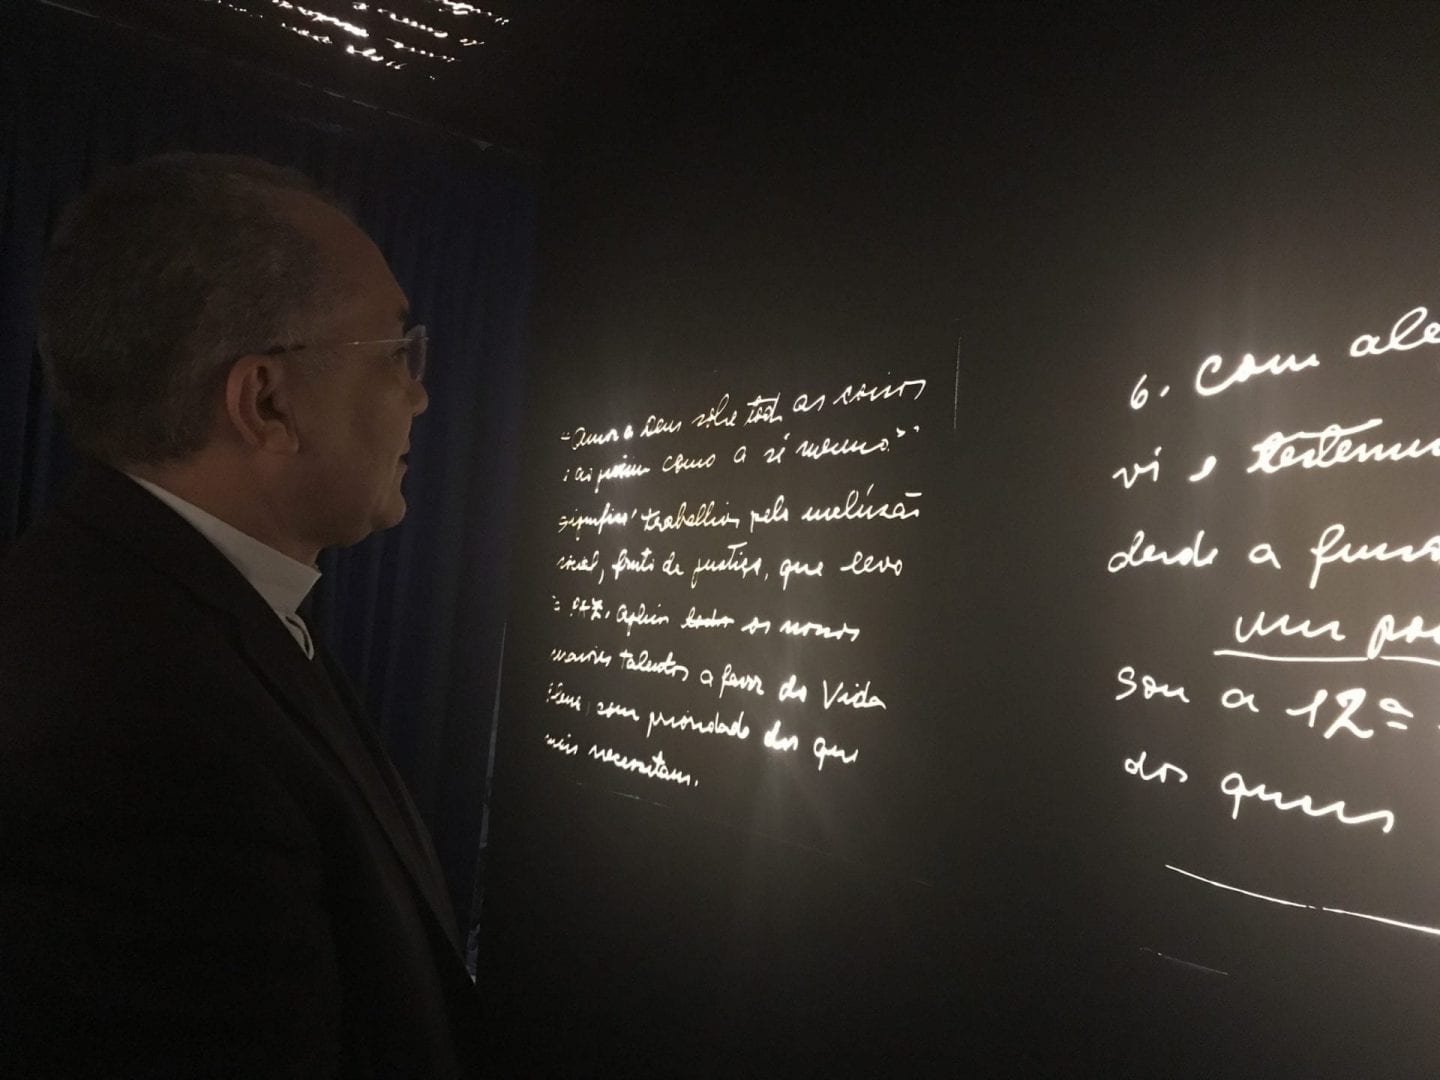 "Amar a Deus sobre todas as coisas
e ao próximo como a si mesmo"
significa trabalhar pela inclusão
social, fruto da justiça, que leva
à PAZ. Aplicar todos os nossos
maiores talentos a favor da Vida
Plena, com prioridade dos que
mais necessitam.
6. Com ale
vi e testemu
desde a fun
um po
Sou a 12ª
dos quais